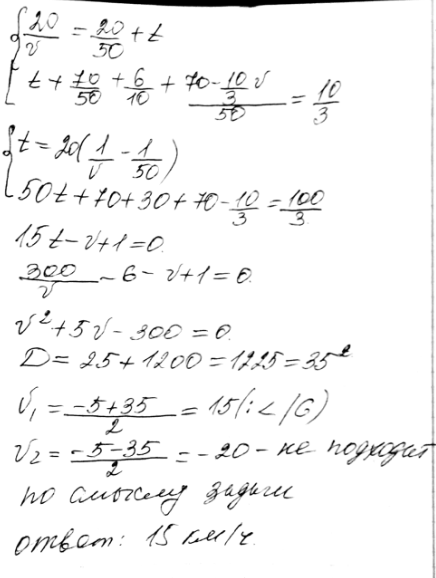 { 20/v = 20/50 + t
t + 70/50 + 6/10 + (70 - 10/3 v)/50 = 10/3
{ t = 20(1/v - 1/50)
50t + 70 + 30 + 70 - 10/3 = 100/3
15t - v + 1 = 0.
300/v - 6 - v + 1 = 0.
v² + 5v - 300 = 0.
D = 25 + 1200 = 1225 = 35²
v₁ = (-5+35)/2 = 15 (
v₂ = (-5-35)/2 = -20 - не подходит
по смыслу задачи
ответ: 15 км/ч.